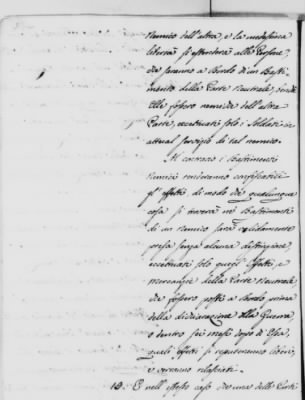 nemico dell'altra, e la medesima
libertà si estenderà alle Persone,
che saranno a Bordo d'un Basti-
mento della Parte Neutrale, quand'
Elle fossero nemiche dell'altra
Parte, eccettuati solo i Soldati in
attual servizio di tal nemico.
Al contrario i Bastimenti
nemici renderanno confiscabili
gl'effetti di modo che qualunque
cosa si troverà ne' Bastimenti
di un nemico sarà validamente
presa senza alcuna distinzione,
eccettuati solo quegl'Effetti, e
mercanzie della Parte Neutrale,
che fossero posti a bordo prima
della dichiarazione della Guerra
o dentro sei mesi dopo di Essa,
quali effetti si reputeranno liberi,
e verranno rilasciati.
E nell'istesso caso che una delle Parti